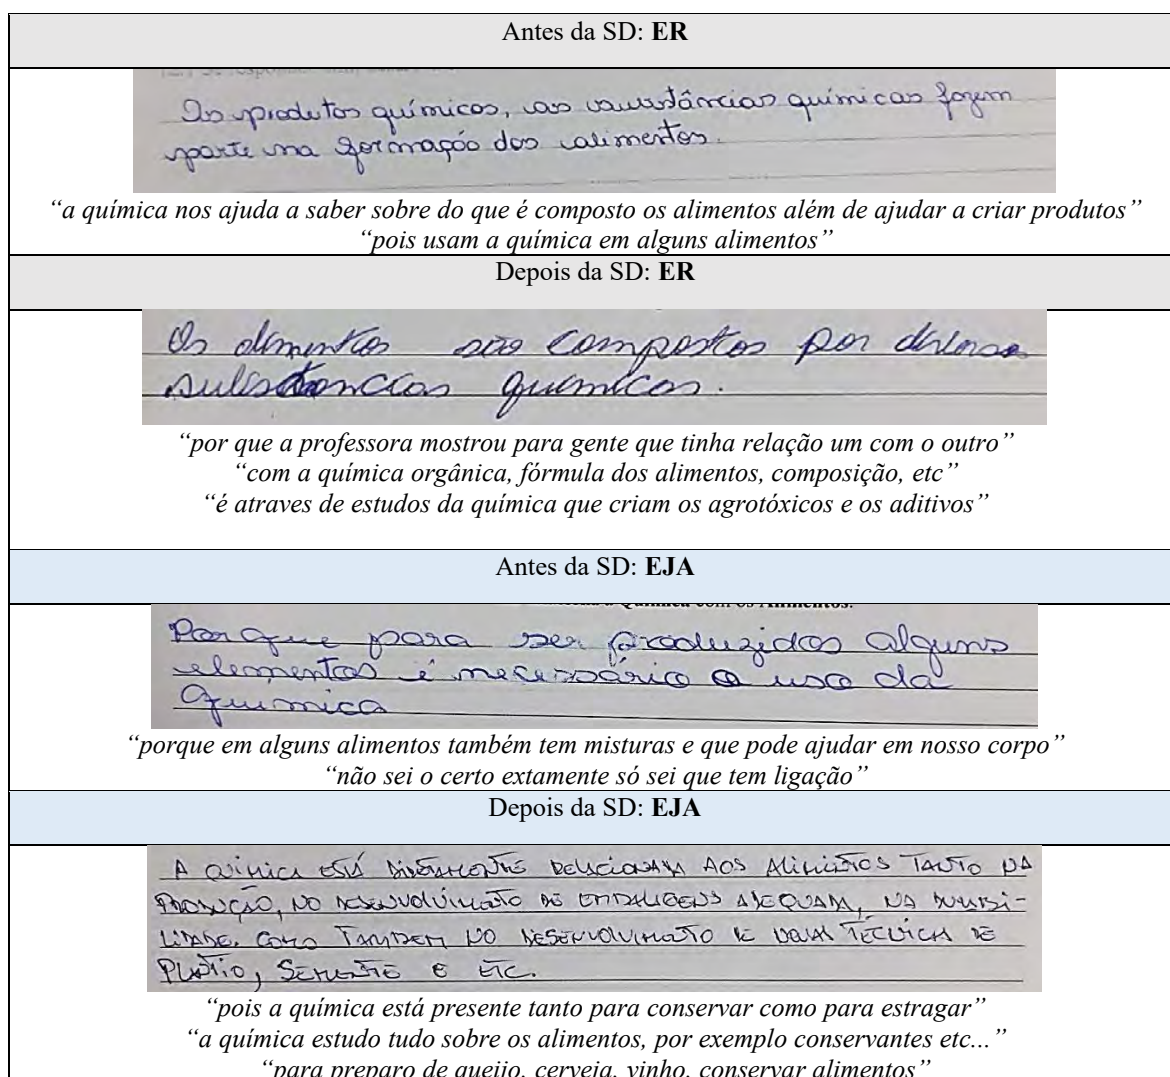 Antes da SD: ER
Os produtos químicos, as substâncias químicas fazem
parte na formação dos alimentos.
“a química nos ajuda a saber sobre do que é composto os alimentos além de ajudar a criar produtos”
“pois usam a química em alguns alimentos”
Depois da SD: ER
Os alimentos são compostos por diversas
substancias quimicas.
“por que a professora mostrou para gente que tinha relação um com o outro”
“com a química orgânica, fórmula dos alimentos, composição, etc”
“é atraves de estudos da química que criam os agrotóxicos e os aditivos”
Antes da SD: EJA
Química com os Alimentos.
Por que para ser produzidos alguns
elementos é necessário o uso da
Química
“porque em alguns alimentos também tem misturas e que pode ajudar em nosso corpo”
“não sei o certo extamente só sei que tem ligação”
Depois da SD: EJA
A QUÍMICA ESTÁ DIRETAMENTE RELACIONADA AOS ALIMENTOS TANTO NA
PRODUÇÃO, NO DESENVOLVIMENTO DE EMBALAGENS ADEQUADA, NA
COMO TAMBEM NO DESENVOLVIMENTO DE NOVAS TÉCNICAS DE
PLANTIO, SEMENTE E ETC.
“pois a química está presente tanto para conservar como para estragar”
“a química estudo tudo sobre os alimentos, por exemplo conservantes etc...”
“para preparo de queijo, cerveja, vinho, conservar alimentos”